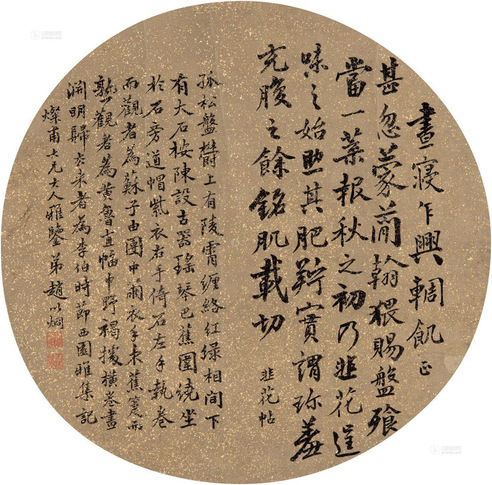 晝寢乍興輖飢正
甚忽蒙簡翰猥賜盤飧
當一葉報秋之初乃韭花逞
味之始助其肥羜實謂珍羞
充腹之餘銘肌載切 韭花帖
孤松盤欝上有陵霄纏絡紅綠相間下
有大石桉陳設古器瑤琴芭蕉圍繞坐
於石旁道帽紫衣右手倚石左手執卷
而觀者為蘇子由團巾繭衣手秉蕉箑而
熟觀者為黃魯直幅巾野褐據橫卷畫
淵明歸去來者為李伯時節西園雅集記
燦甫七兄大人雅鑒 弟趙以炯